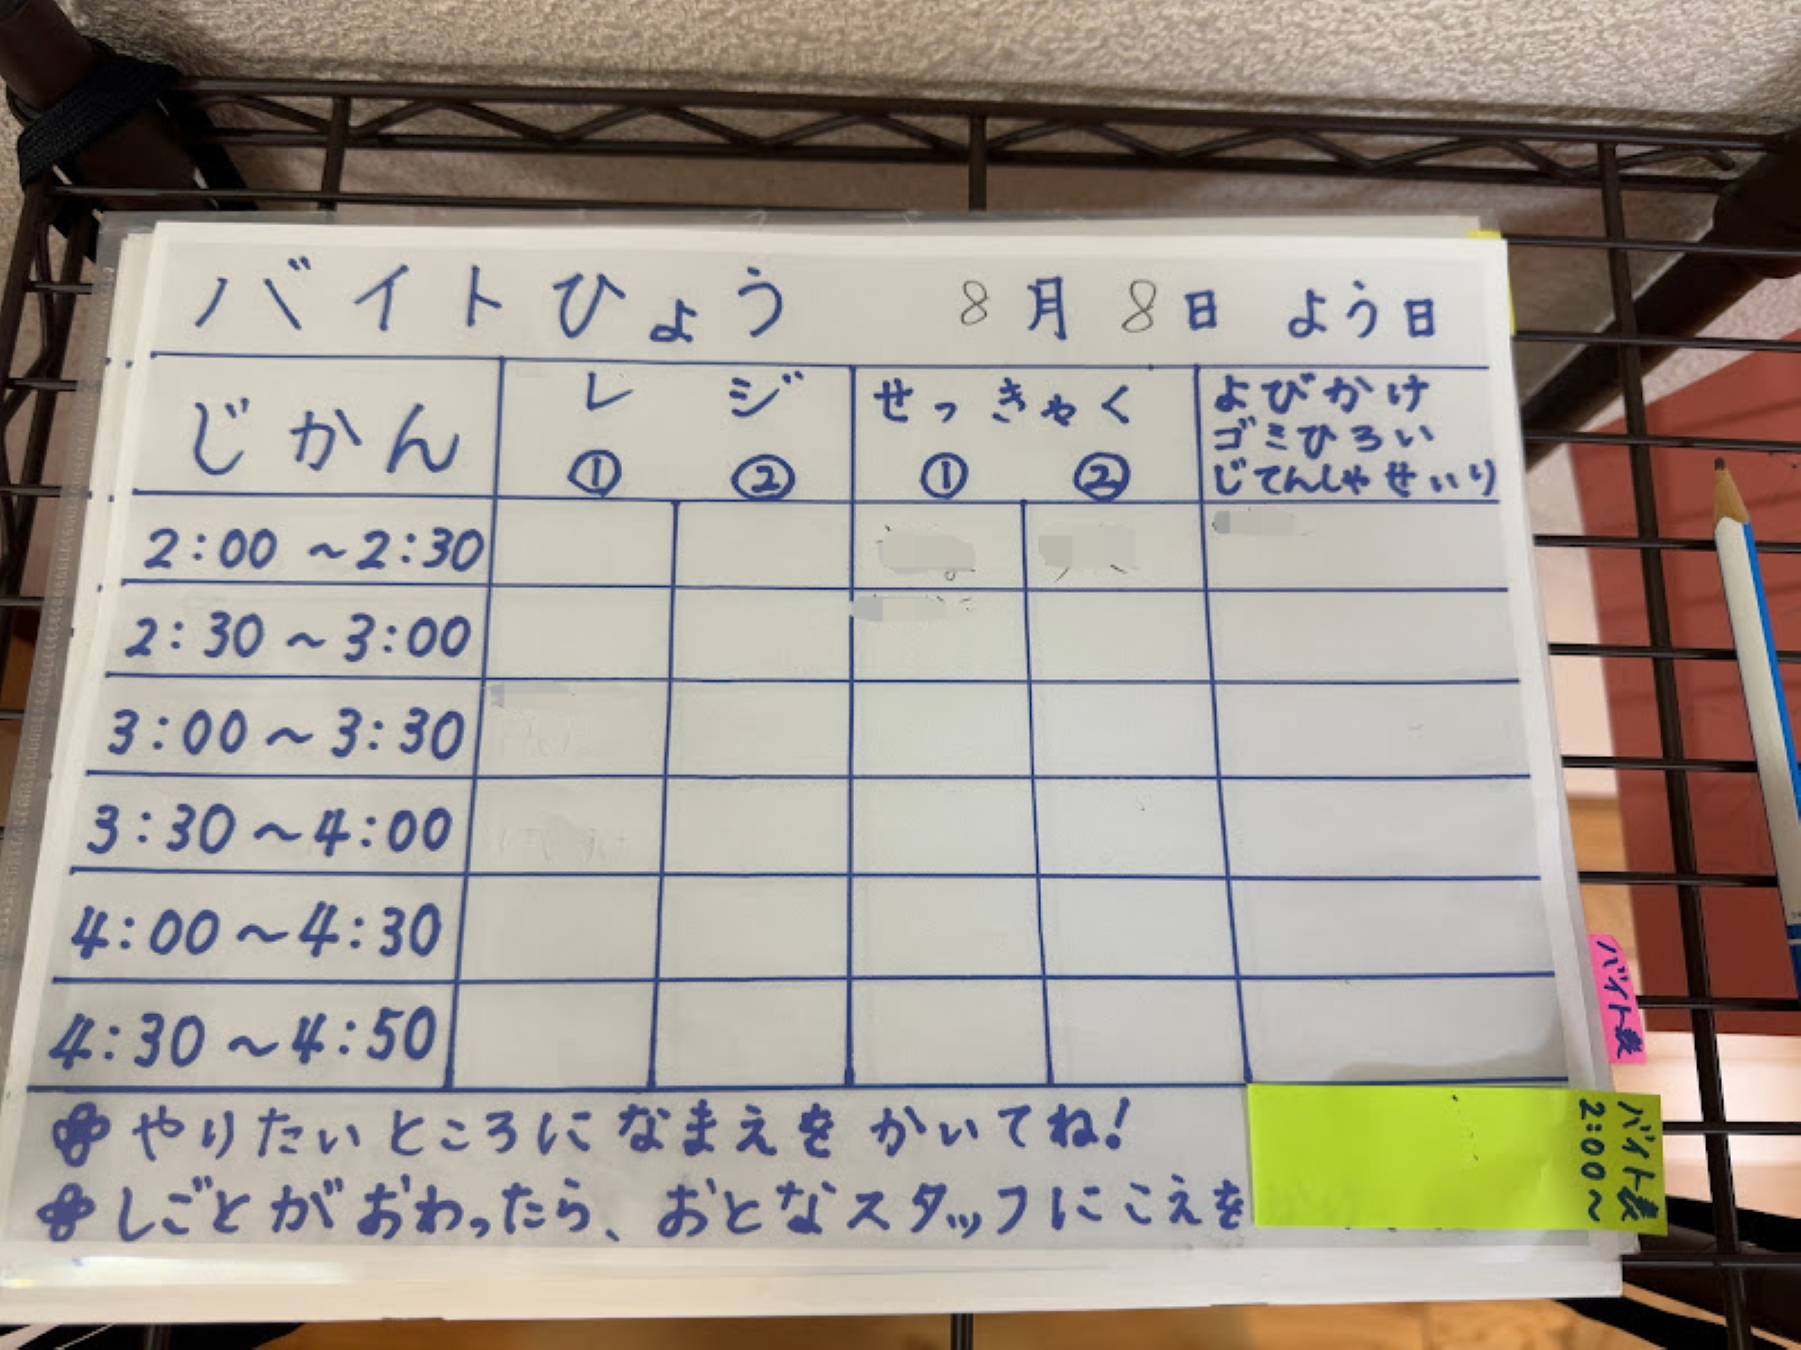 バイトひょう 8月8日 よう日
じかん レジ せっきゃく よびかけ
① ② ① ② ゴミひろい
じてんしゃせいり
2:00 ~2:30
2:30 ~3:00
3:00 ~3:30
3:30 ~4:00
4:00 ~4:30
4:30 ~4:50
やりたいところに なまえを かいてね!
しごとがおわったら、おとなスタッフにこえを
バイト表
バイト表
2:00~